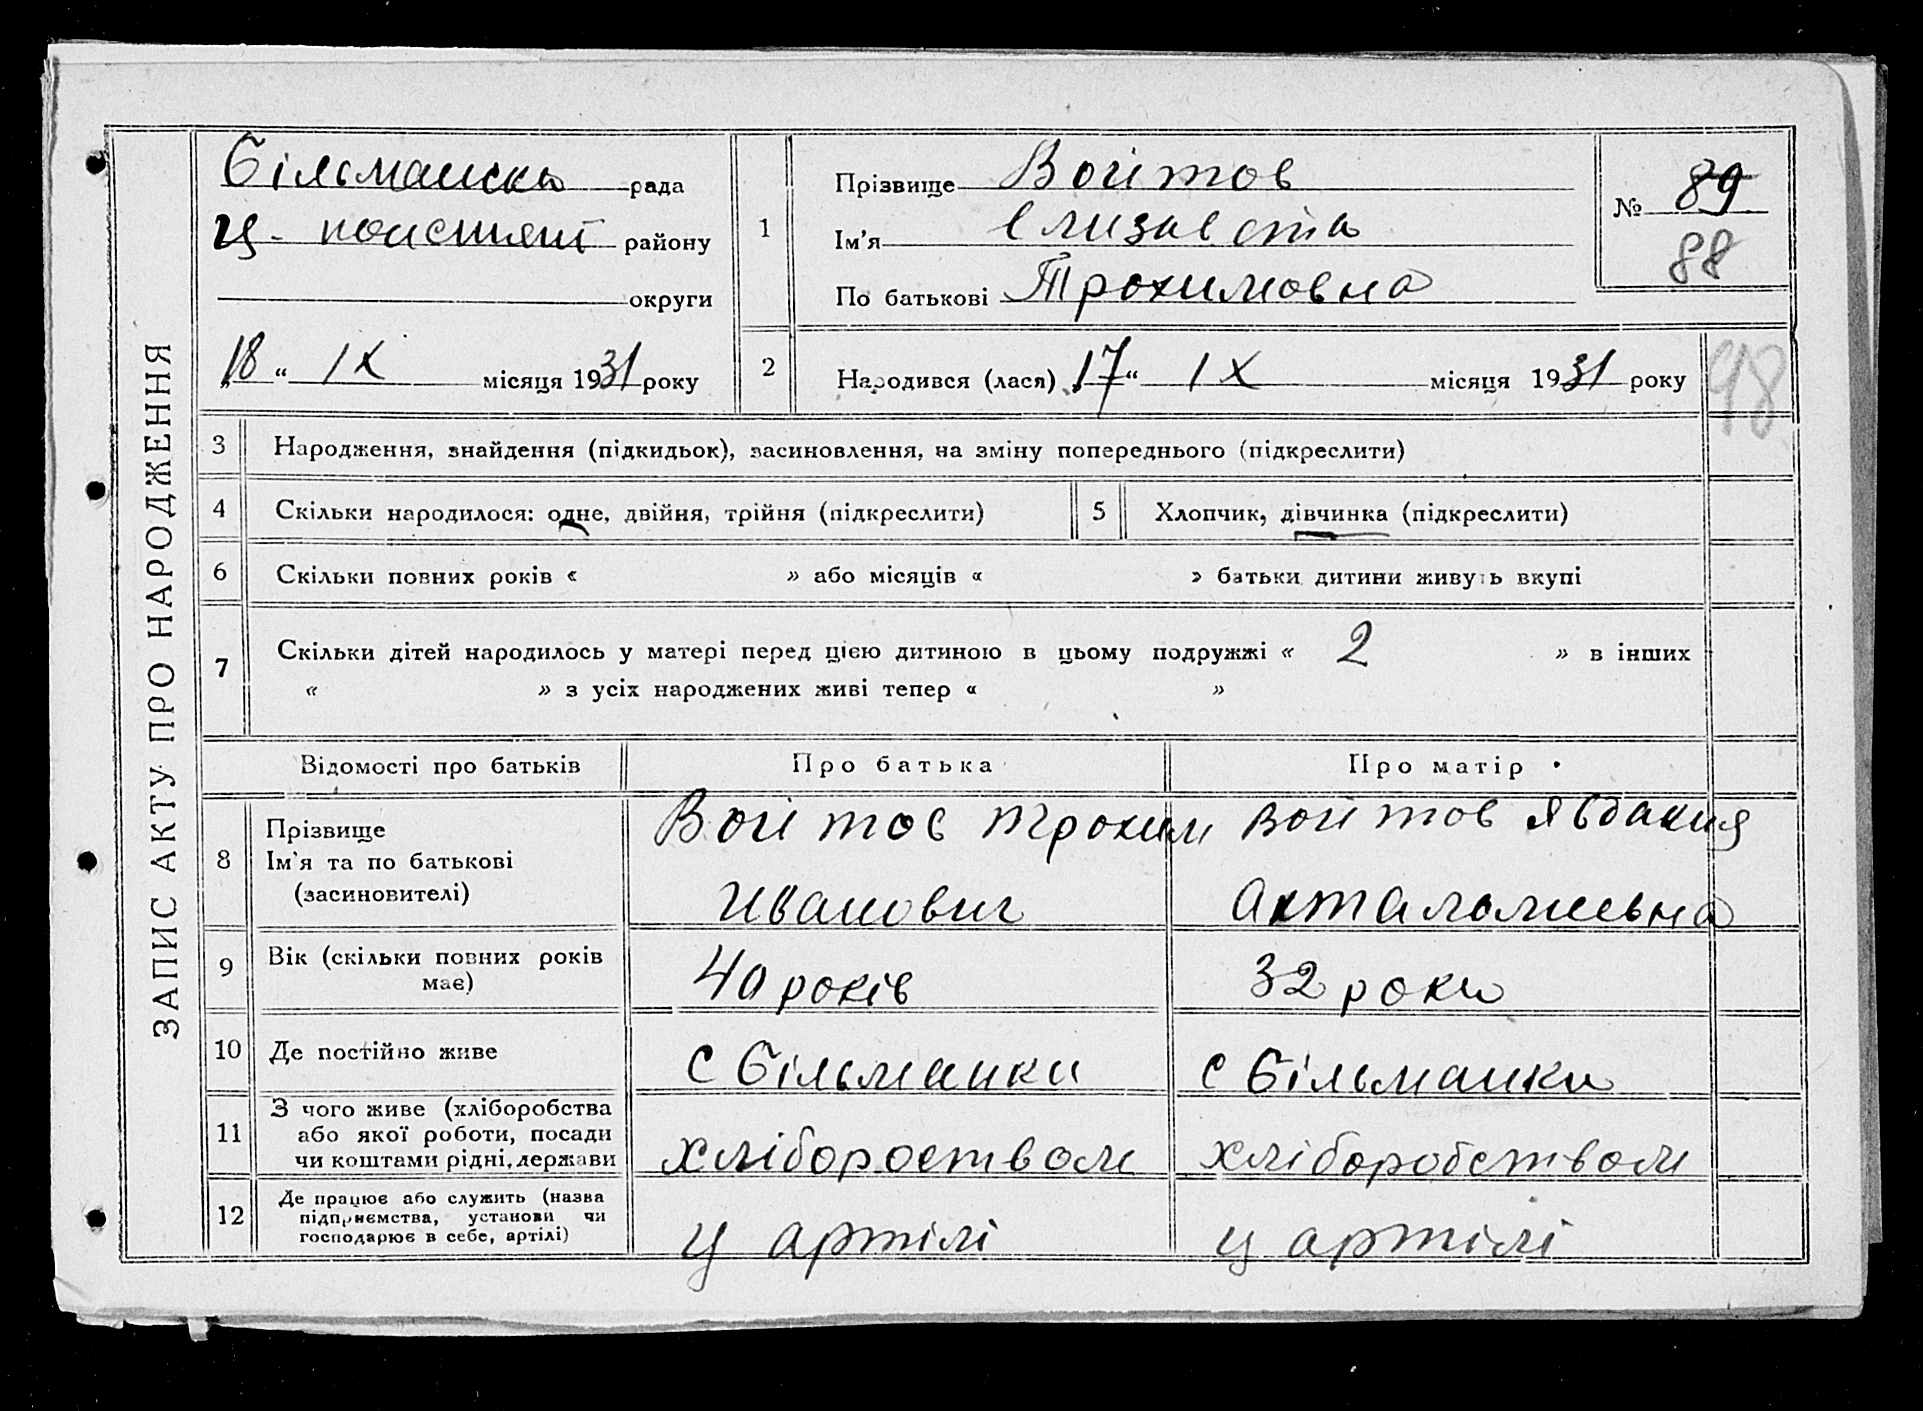 ЗАПИС АКТУ ПРО НАРОДЖЕННЯ
Більманська рада
району
округи
18 “ IX місяця 1931 року
1
Прізвище Войтов
Ім’я Елизавета
По батькові Трохимовна
№ 89
88
2
Народився (лася) 17 “ IX місяця 1931 року
98
3 Народження, знайдення (підкидьок), засиновлення, на зміну попереднього (підкреслити)
4 Скільки народилося: одне, двійня, трійня (підкреслити) 5 Хлопчик, дівчинка (підкреслити)
6 Скільки повних років « » або місяців « » батьки дитини живуть вкупі
7 Скільки дітей народилось у матері перед цією дитиною в цьому подружжі « 2 » в інших
« » з усіх народжених живі тепер « »
Відомості про батьків Про батька Про матір
8 Прізвище Войтов Трохим Войтов Явдакия
Ім’я та по батькові
(засиновителі) Иванович
9 Вік (скільки повних років 40 років 32 роки
має)
10 Де постійно живе с Більманки с Більманки
11 З чого живе (хліборобства
або якої роботи, посади
чи коштами рідні, держави хлібороством хліборобством
12 Де працює або служить (назва
підприємства, установи чи
господарює в себе, артілі) у артілі у артілі